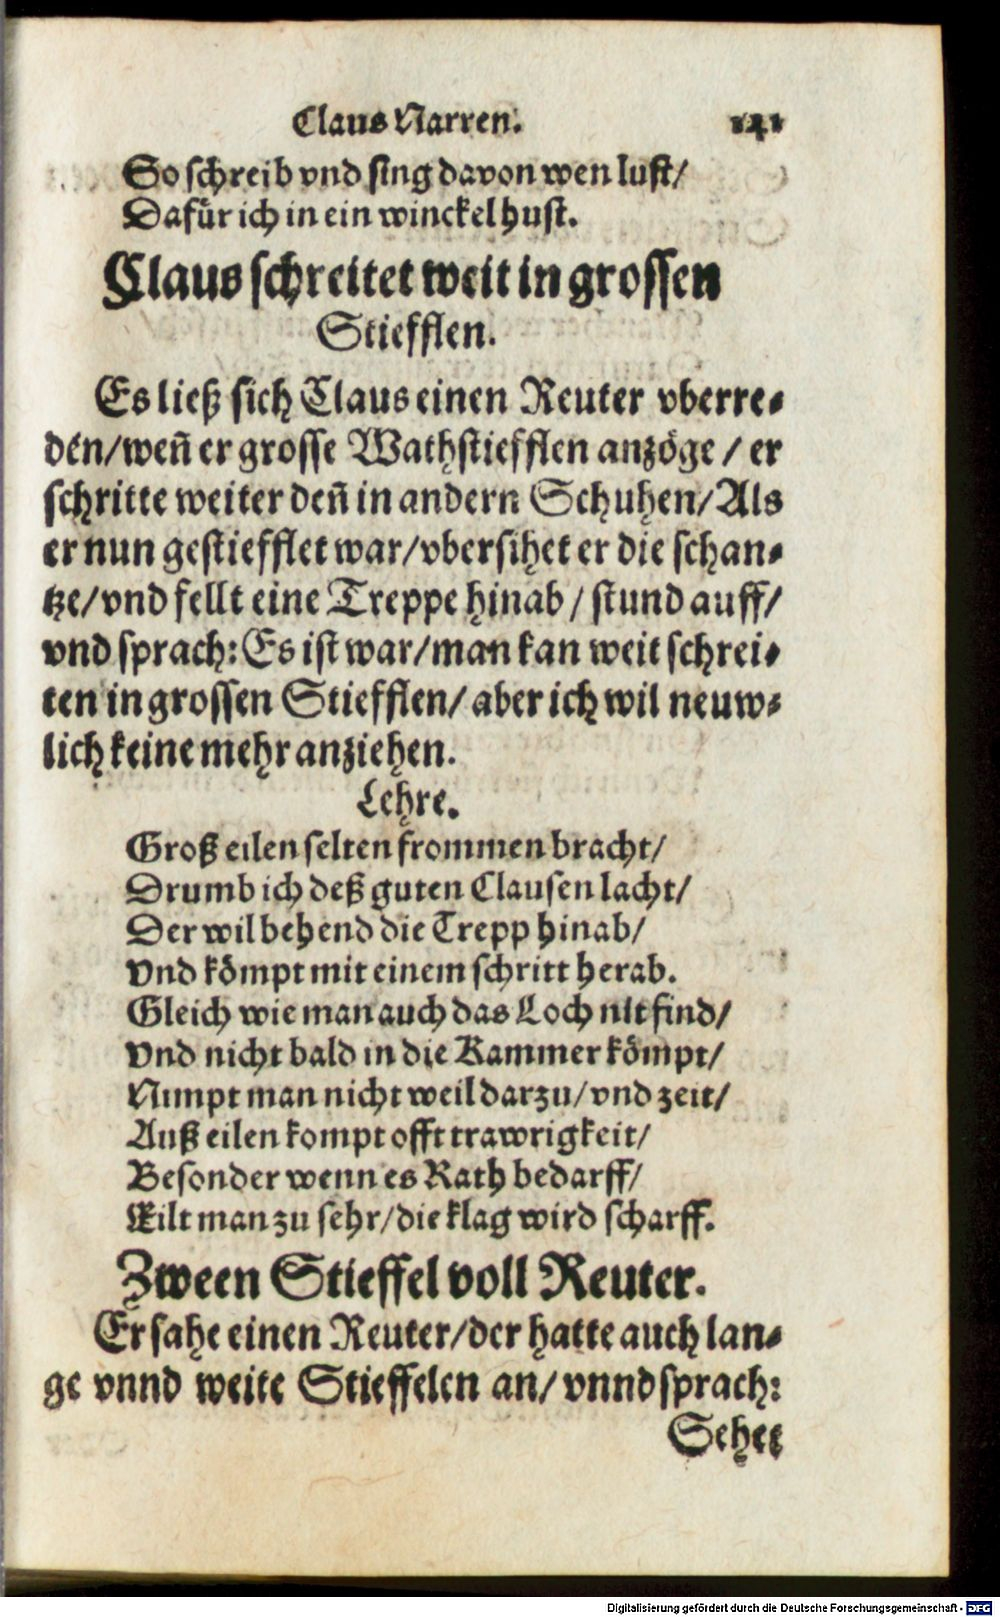 Claus Narren. 141
So schreib vnd sing davon wen lust/
Dafür ich in ein winckel hust.
Claus schreitet weit in grossen
Stiefflen.
Es ließ sich Claus einen Reuter vberre-
den/weñ er grosse Wathstiefflen anzöge / er
schritte weiter deñ in andern Schuhen/Als
er nun gestiefflet war/vbersihet er die schan-
tze/vnd fellt eine Treppe hinab / stund auff/
vnd sprach: Es ist war/man kan weit schrei-
ten in grossen Stiefflen/ aber ich wil neuw-
lich keine mehr anziehen.
Lehre.
Groß eilen selten frommen bracht/
Drumb ich deß guten Clausen lacht/
Der wil behend die Trepp hinab/
Vnd kömpt mit einem schritt herab.
Gleich wie man auch das Loch nit find/
Vnd nicht bald in die Kammer kömpt/
Nimpt man nicht weil darzu/vnd zeit/
Auß eilen kompt offt trawrigkeit/
Besonder wenn es Rath bedarff/
Eilt man zu sehr/die klag wird scharff.
Zween Stieffel voll Reuter.
Er sahe einen Reuter/der hatte auch lan-
ge vnnd weite Stieffelen an/ vnnd sprach:
Sehet
Digitalisierung gefördert durch die Deutsche Forschungsgemeinschaft - DFG